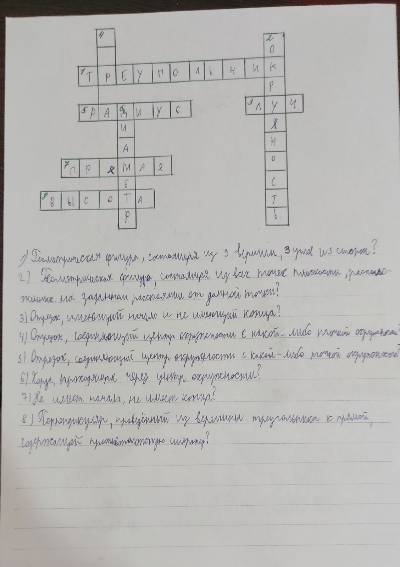 4
2
О
1 ТРЕУГОЛЬНИК
Р
5 РАДИУС
3 ЛУЧ
И
Ж
А
Н
7 ПРЯМАЯ
О
Е
С
8 ВЫСОТА
Т
Р
Ь
1) Геометрическая фигура, состоящая из 3 вершин, 3 углов и 3 сторон?
2) Геометрическая фигура, состоящая из всех точек плоскости, располо-
женных на заданном расстоянии от данной точки?
3) Отрезок, имеющий начало и не имеющий конца?
4) Отрезок, соединяющий центр окружности с какой-либо точкой окружности?
5) Отрезок, соединяющий центр окружности с какой-либо точкой окружности?
6) Хорда, проходящая через центр окружности?
7) Не имеет начала, не имеет конца?
8) Перпендикуляр, проведённый из вершины треугольника к прямой,
содержащей сторону?